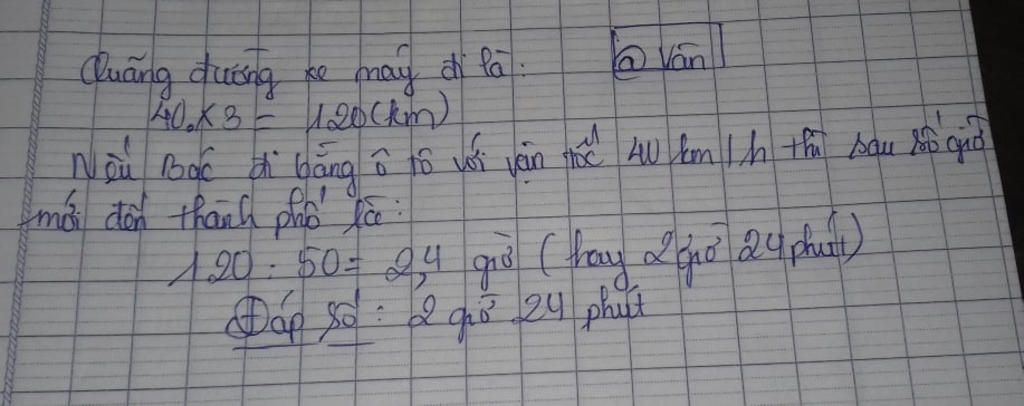 Quãng đường xe máy đi là: @ Vân
40 x 3 = 120 (km)
Nếu Bác đi bằng ô tô với vận tốc 40 km/h thì sau số giờ
mới đến thành phố là:
120 : 50 = 2,4 giờ (hay 2 giờ 24 phút)
Đáp số: 2 giờ 24 phút